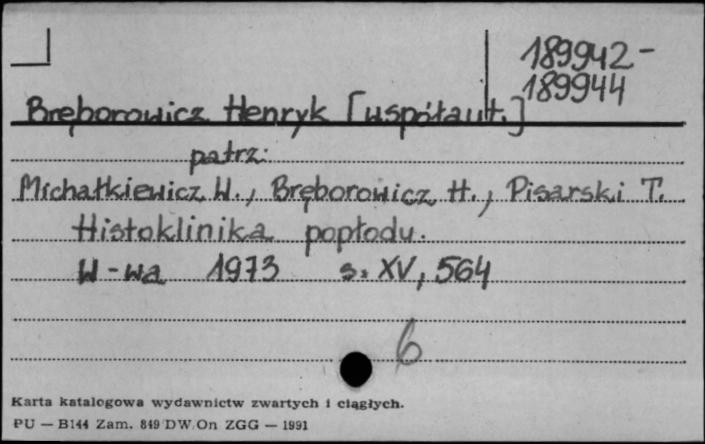 189942-
189944
Bręborowicz Henryk [współaut.]
patrz:
Michałkiewicz W., Bręborowicz H., Pisarski T.
Histoklinika popłodu.
W-wa 1973 s. XV, 564
6
Karta katalogowa wydawnictw zwartych i ciągłych.
PU — B144 Zam. 849 DW On ZGG — 1991